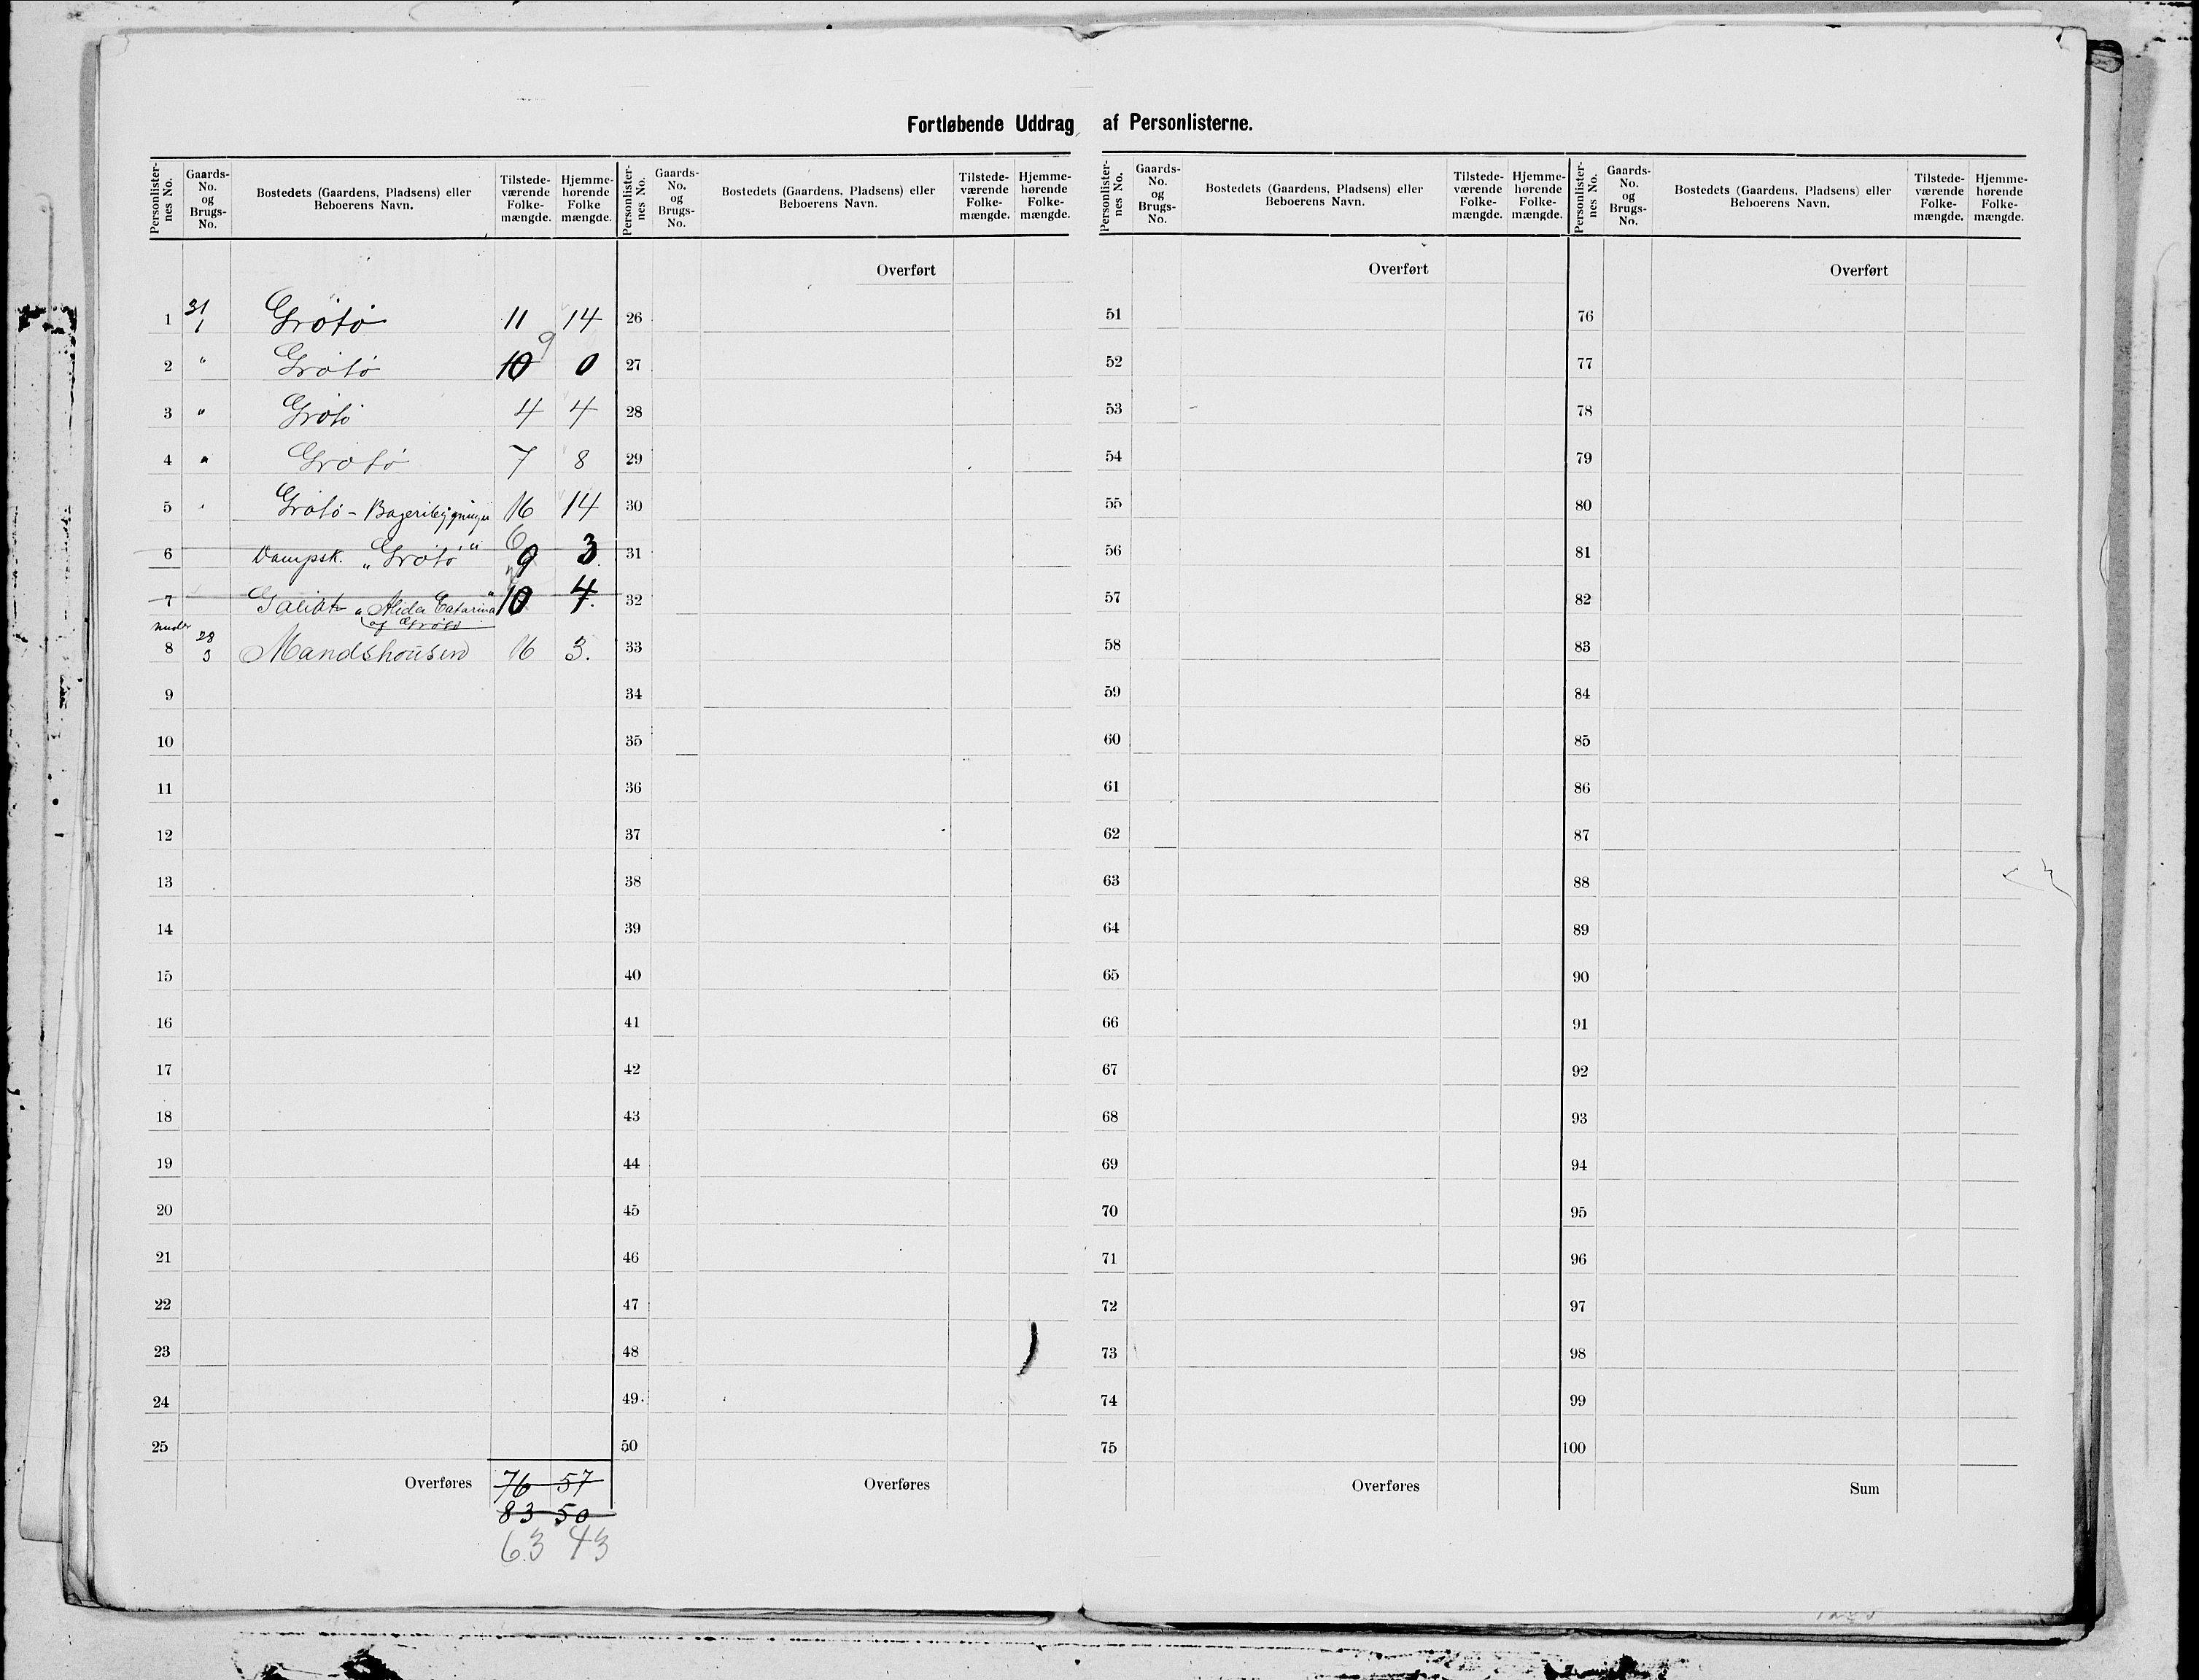 Fortløbende Uddrag af Personlisterne.
Personlister-nes No. | Gaards-No. og Brugs-No. | Bostedets (Gaardens, Pladsens) eller Beboerens Navn. | Tilstede-værende Folke-mængde. | Hjemme-hørende Folke mængde. | Personlister-nes No. | Gaards-No. og Brugs-No. | Bostedets (Gaardens, Pladsens) eller Beboerens Navn. | Tilstede-værende Folke-mængde. | Hjemme-hørende Folke-mængde. | Personlister-nes No. | Gaards-No. og Brugs-No. | Bostedets (Gaardens, Pladsens) eller Beboerens Navn. | Tilstede-værende Folke-mængde. | Hjemme-hørende Folke-mængde. | Personlister-nes No. | Gaards-No. og Brugs-No. | Bostedets (Gaardens, Pladsens) eller Beboerens Navn. | Tilstede-værende Folke-mængde. | Hjemme-hørende Folke-mængde.
Overført Overført Overført
1 31/1 Grötö 11 14 26 51 76
2 " Grötö 10 9 0 27 52 77
3 " Grötö 4 4 28 53 78
4 " Grötö 7 8 29 54 79
5 Grötö - Bageribygningen 16 14 30 55 80
6 Dampsk. „Grötö" 6 9 3 31 56 81
7 Galeas „Alida Catarina" 10 4. 32 57 82
af Grötö
8 28/3 Mandshousen 16 3. 33 58 83
9 34 59 84
10 35 60 85
11 36 61 86
12 37 62 87
13 38 63 88
14 39 64 89
15 40 65 90
16 41 66 91
17 42 67 92
18 43 68 93
19 44 69 94
20 45 70 95
21 46 71 96
22 47 72 97
23 48 73 98
24 49 74 99
25 50 75 100
Overføres 76 57 Overføres Overføres Sum
83 50
63 43